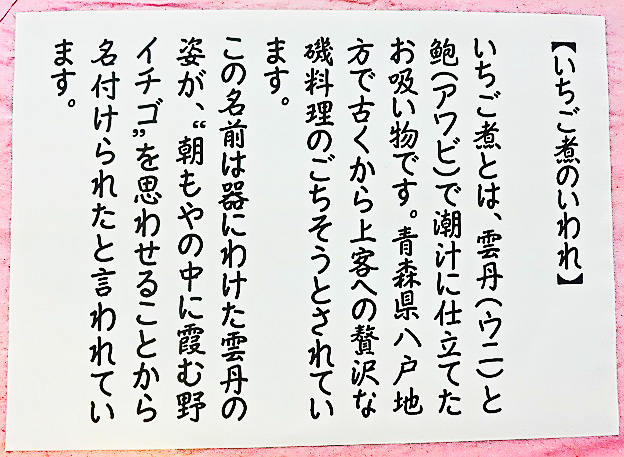 【いちご煮のいわれ】
いちご煮とは、雲丹(ウニ)と
鮑(アワビ)で潮汁に仕立てた
お吸い物です。青森県八戸地
方で古くから上客への贅沢な
磯料理のごちそうとされてい
ます。
この名前は器にわけた雲丹の
姿が、“朝もやの中に霞む野
イチゴ”を思わせることから
名付けられたと言われてい
ます。